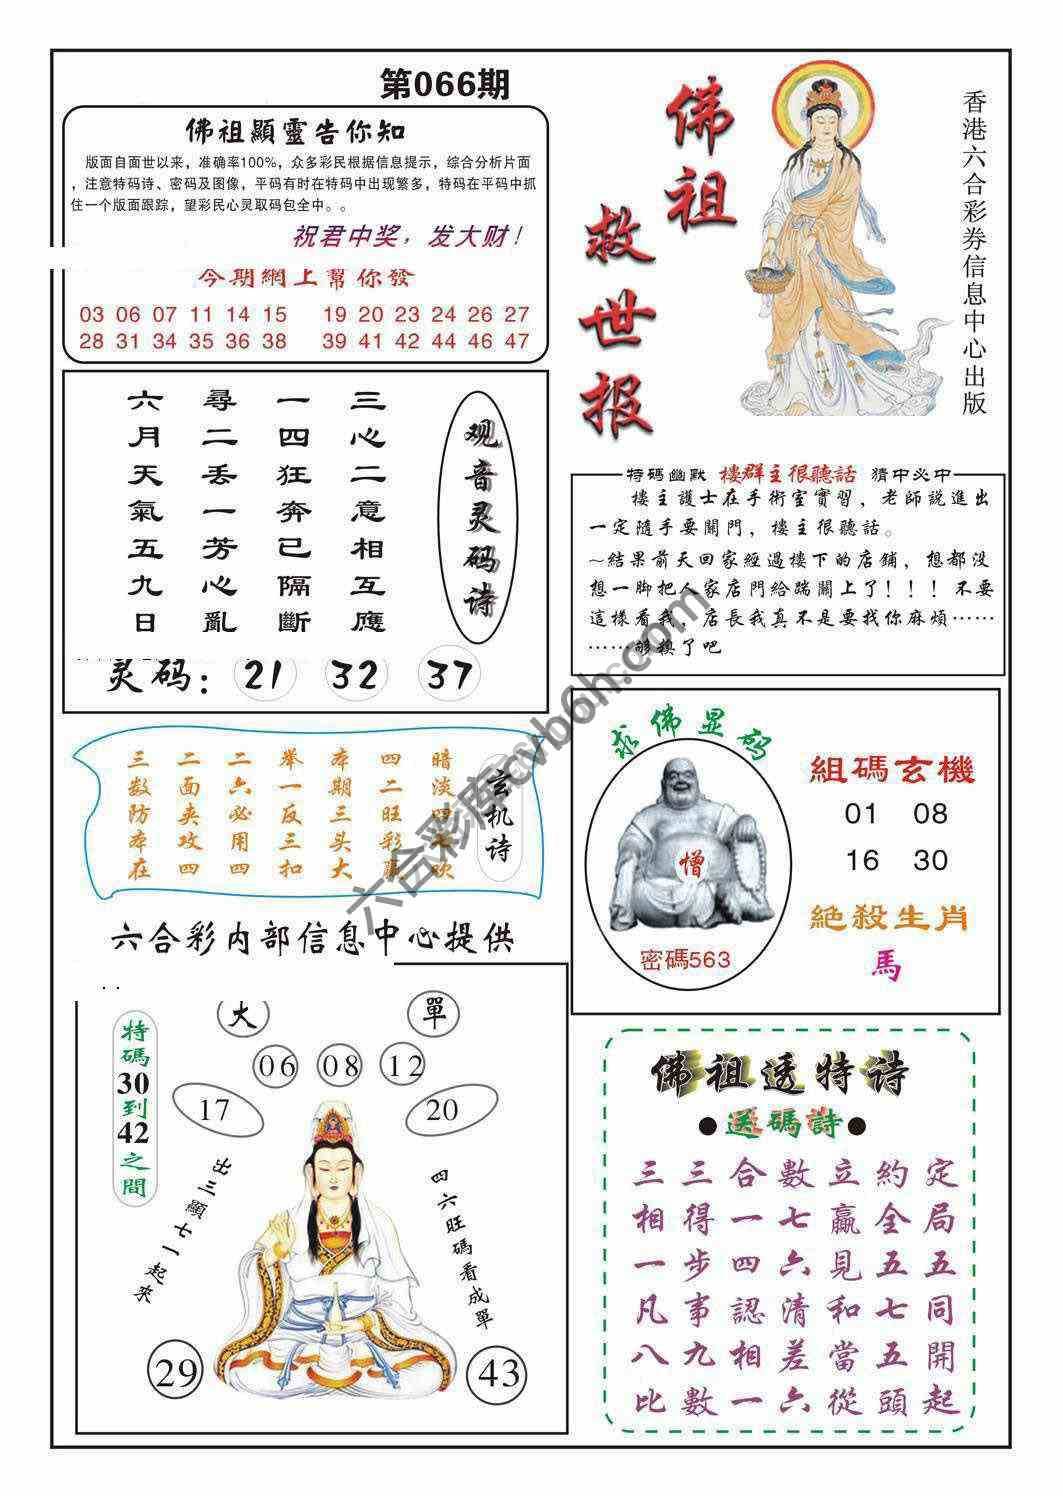 第066期
佛祖顯靈告你知
版面自面世以来，准确率100%，众多彩民根据信息提示，综合分析片面
，注意特码诗、密码及图像，平码有时在特码中出现繁多，特码在平码中抓
住一个版面跟踪，望彩民心灵取码包全中。。
祝君中奖，发大财！
今期網上幫你發
03 06 07 11 14 15 19 20 23 24 26 27
28 31 34 35 36 38 39 41 42 44 46 47
佛祖救世报
香港六合彩券信息中心出版
观音灵码诗
三心二意相互應
一四狂奔已隔斷
尋二丢一芳心亂
六月天氣五九日
灵码：21 32 37
特碼幽默 樓群主很聽話 猜中必中
樓主護士在手術室實習，老師説進出
一定隨手要關門，樓主很聽話。
~结果前天回家經過樓下的店鋪，想都没
想一脚把人家店門給踹關上了！！！不要
這樣看我，店長我真不是要找你麻煩……
……够糗了吧
玄机诗
暗淡四七欢
四二旺彩赢
本期三头大
举一反三扣
二六必用四
二面夹攻四
三数防本在
六合彩内部信息中心提供
求佛显码
憎
密碼563
組碼玄機
01 08
16 30
絶殺生肖
馬
特碼30到42之間
大 單
06 08 12
17 20
出三顯七一起來
四六旺碼看成單
29 43
佛祖透特诗
●送碼詩●
三三合數立約定
相得一七贏全局
一步四六見五五
凡事認清和七同
八九相差當五開
比數一六從頭起
六合彩库cvb6h.com